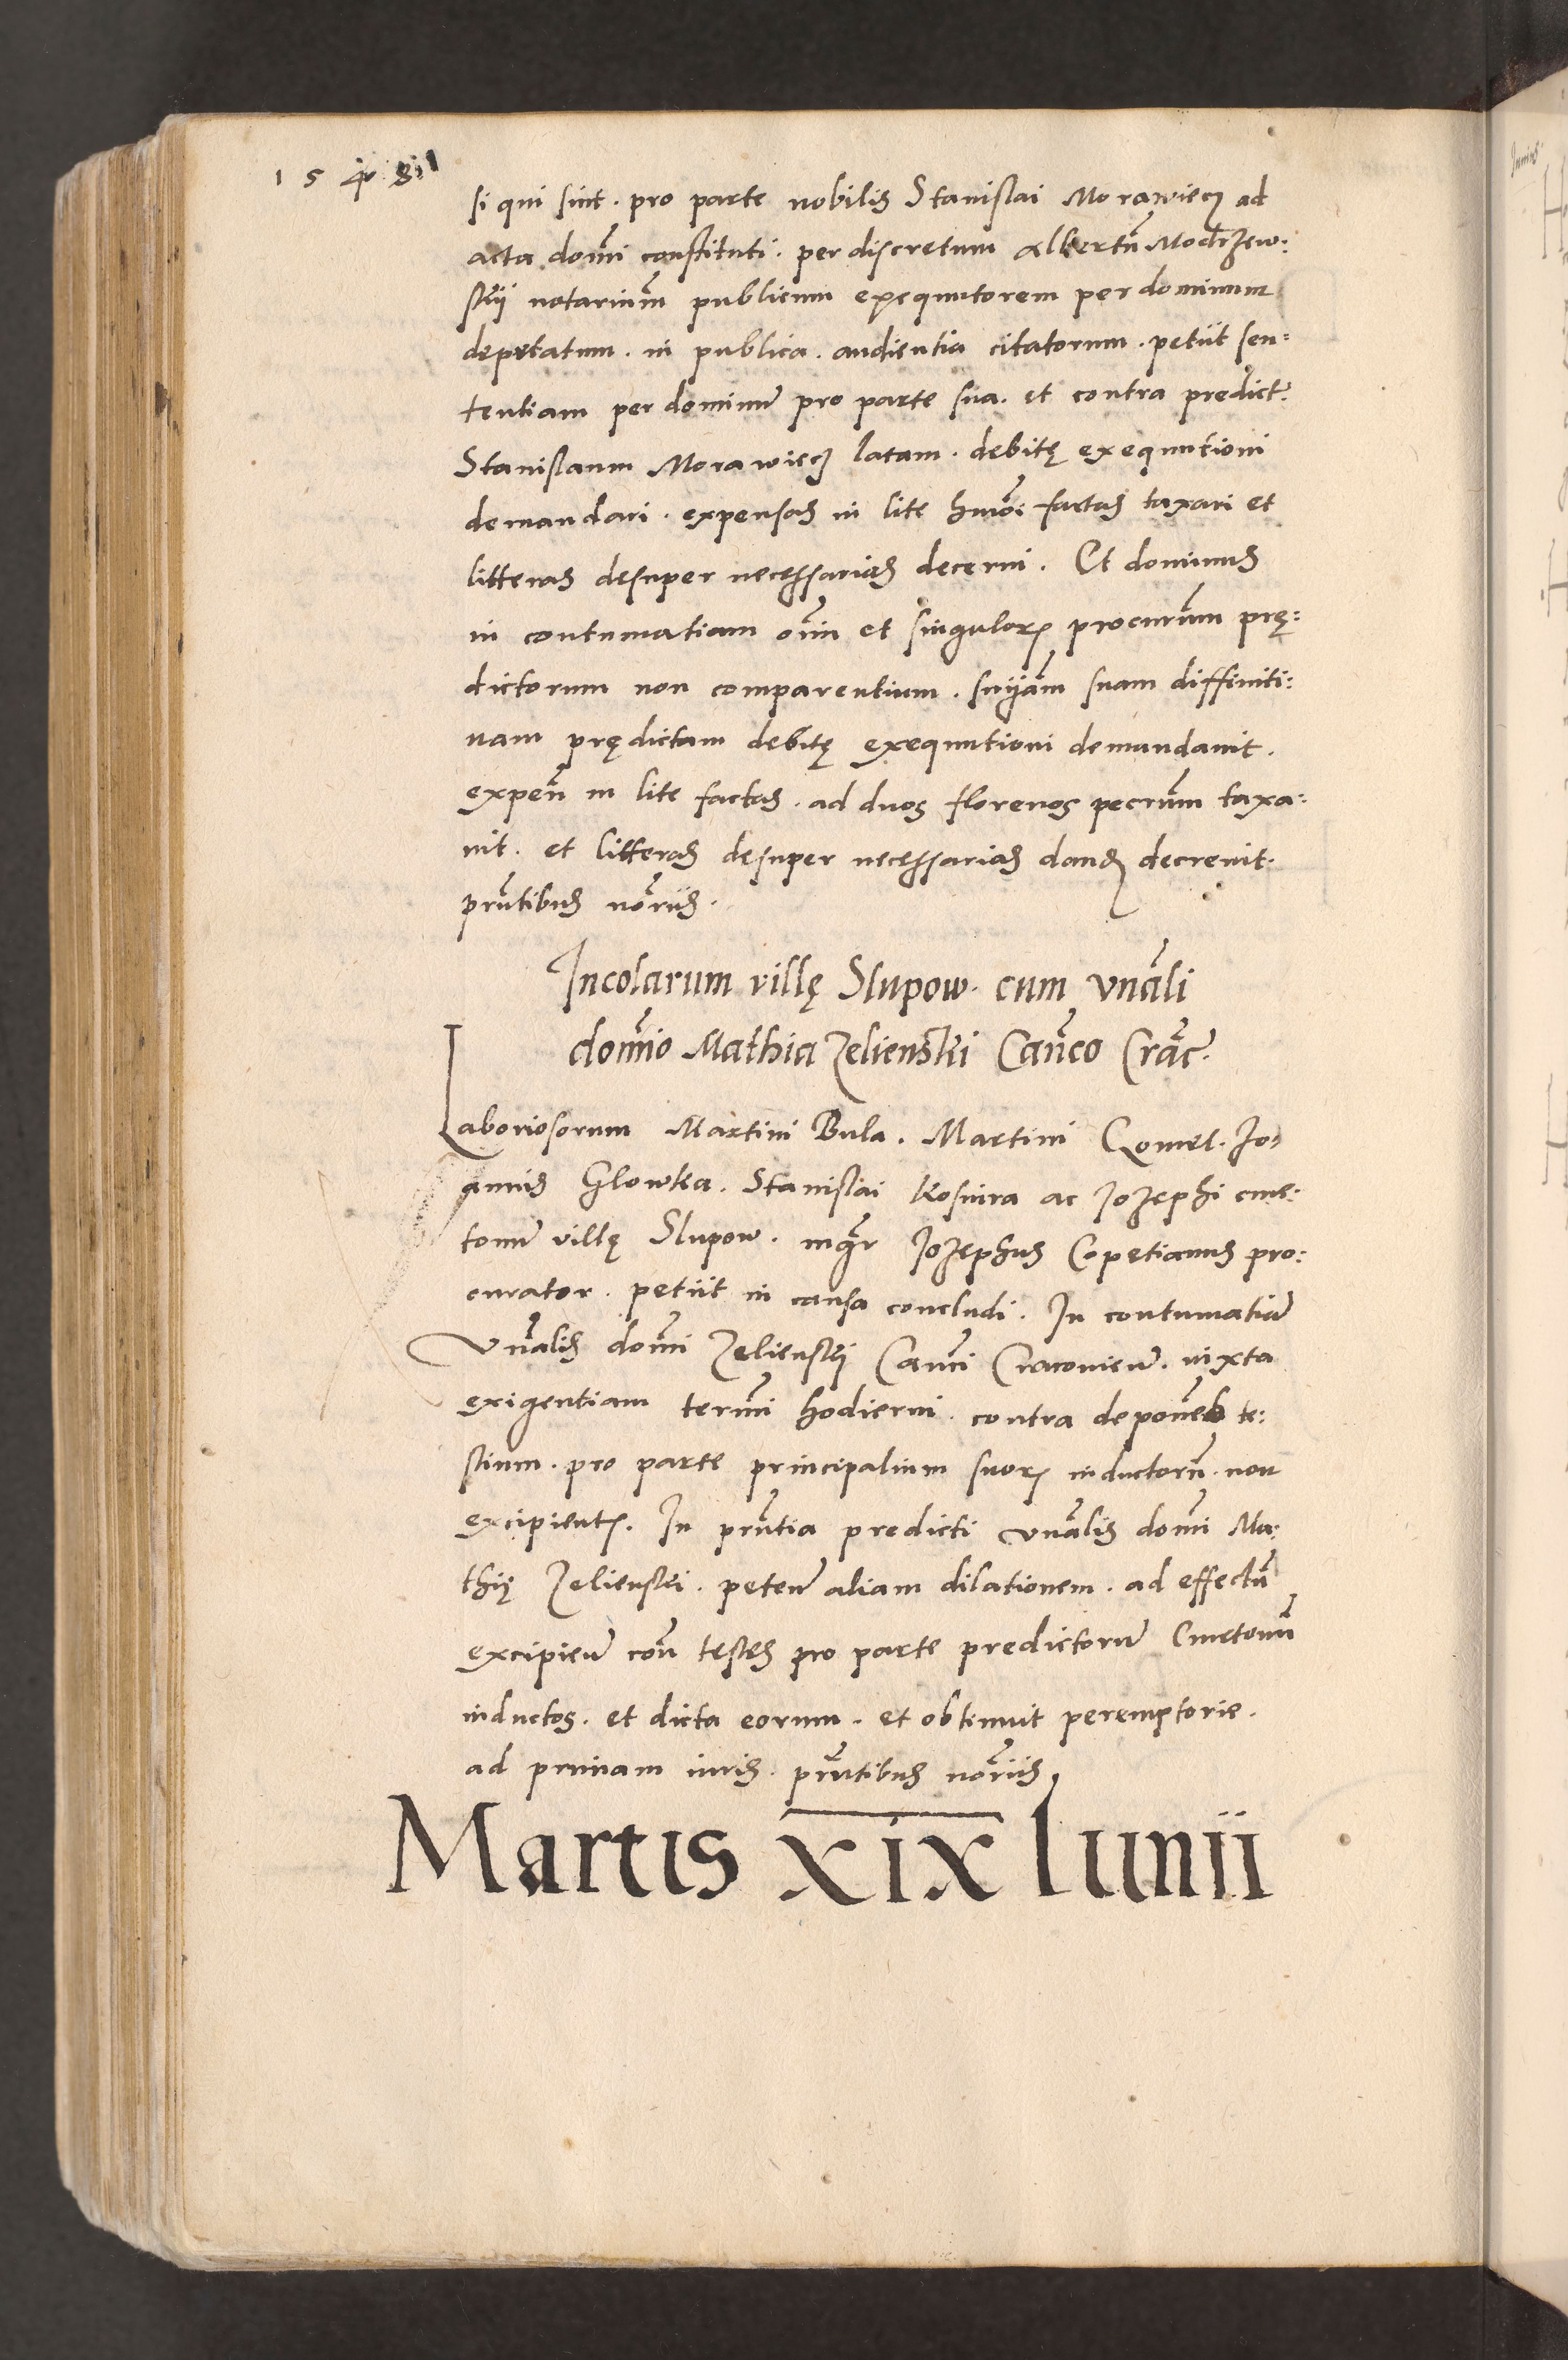 1548
si qui sint. pro parte nobilis Stanislai Morawiecz ad
acta domĩ constituti. per discretum Albertũ Modrzew:
skij notarium̃ publicum exequutorem per dominum
deputatum. in publica. audientia citatorum. petiit sen:
tentiam per dominũ pro parte sua. et contra predict̃
Stanislaum Morawiecz latam. debitę exequutioni
demandari. expensas in lite hmõi factas taxari et
litteras desuper necessarias decerni. Et dominus
in contumatiam om̃ et singulorꝫ procurum̃ prę:
dictorum non comparentium. sniam̃ suam diffiniti:
uam prędictam debitę exequutioni demandauit.
expen̄ in lite factas. ad duos florenos pecum̃ taxa:
uit. et litteras desuper necessarias dandꝫ decreuit.
prñtibus norĩis.
Incolarum villę Slupow. cum vnãli
dom̃no Mathia Zelienski Cañco Crãc.
Laboriosorum Martini Bula. Martini Gomel. Jo:
annis Glowka. Stanislai Kosmra ac Jozephi cme:
tonũ villę Slupow. mgr̃ Jozephus Copetianus pro:
curator. petiit in causa concludi. In contumatiã
Vnãlis dom̃i Zelienskij Canci Cracovien̄. iuxta
exigentiam term̃i hodierni. contra deponẽs te:
stium. pro parte principalium suorꝫ inductorũ. non
excipientꝭ. In prñtia predicti vnãlis dom̃i Ma:
thię Zelienskij. peten̄ aliam dilationem. ad effectũ
excipien̄ con̄ testes pro parte predictorũ Cmetonũ
inductos. et dicta eorum. et obtinuit peremptorie.
ad primam iuris. prñtibus norĩis.
Martis XIX Iunii
Junius